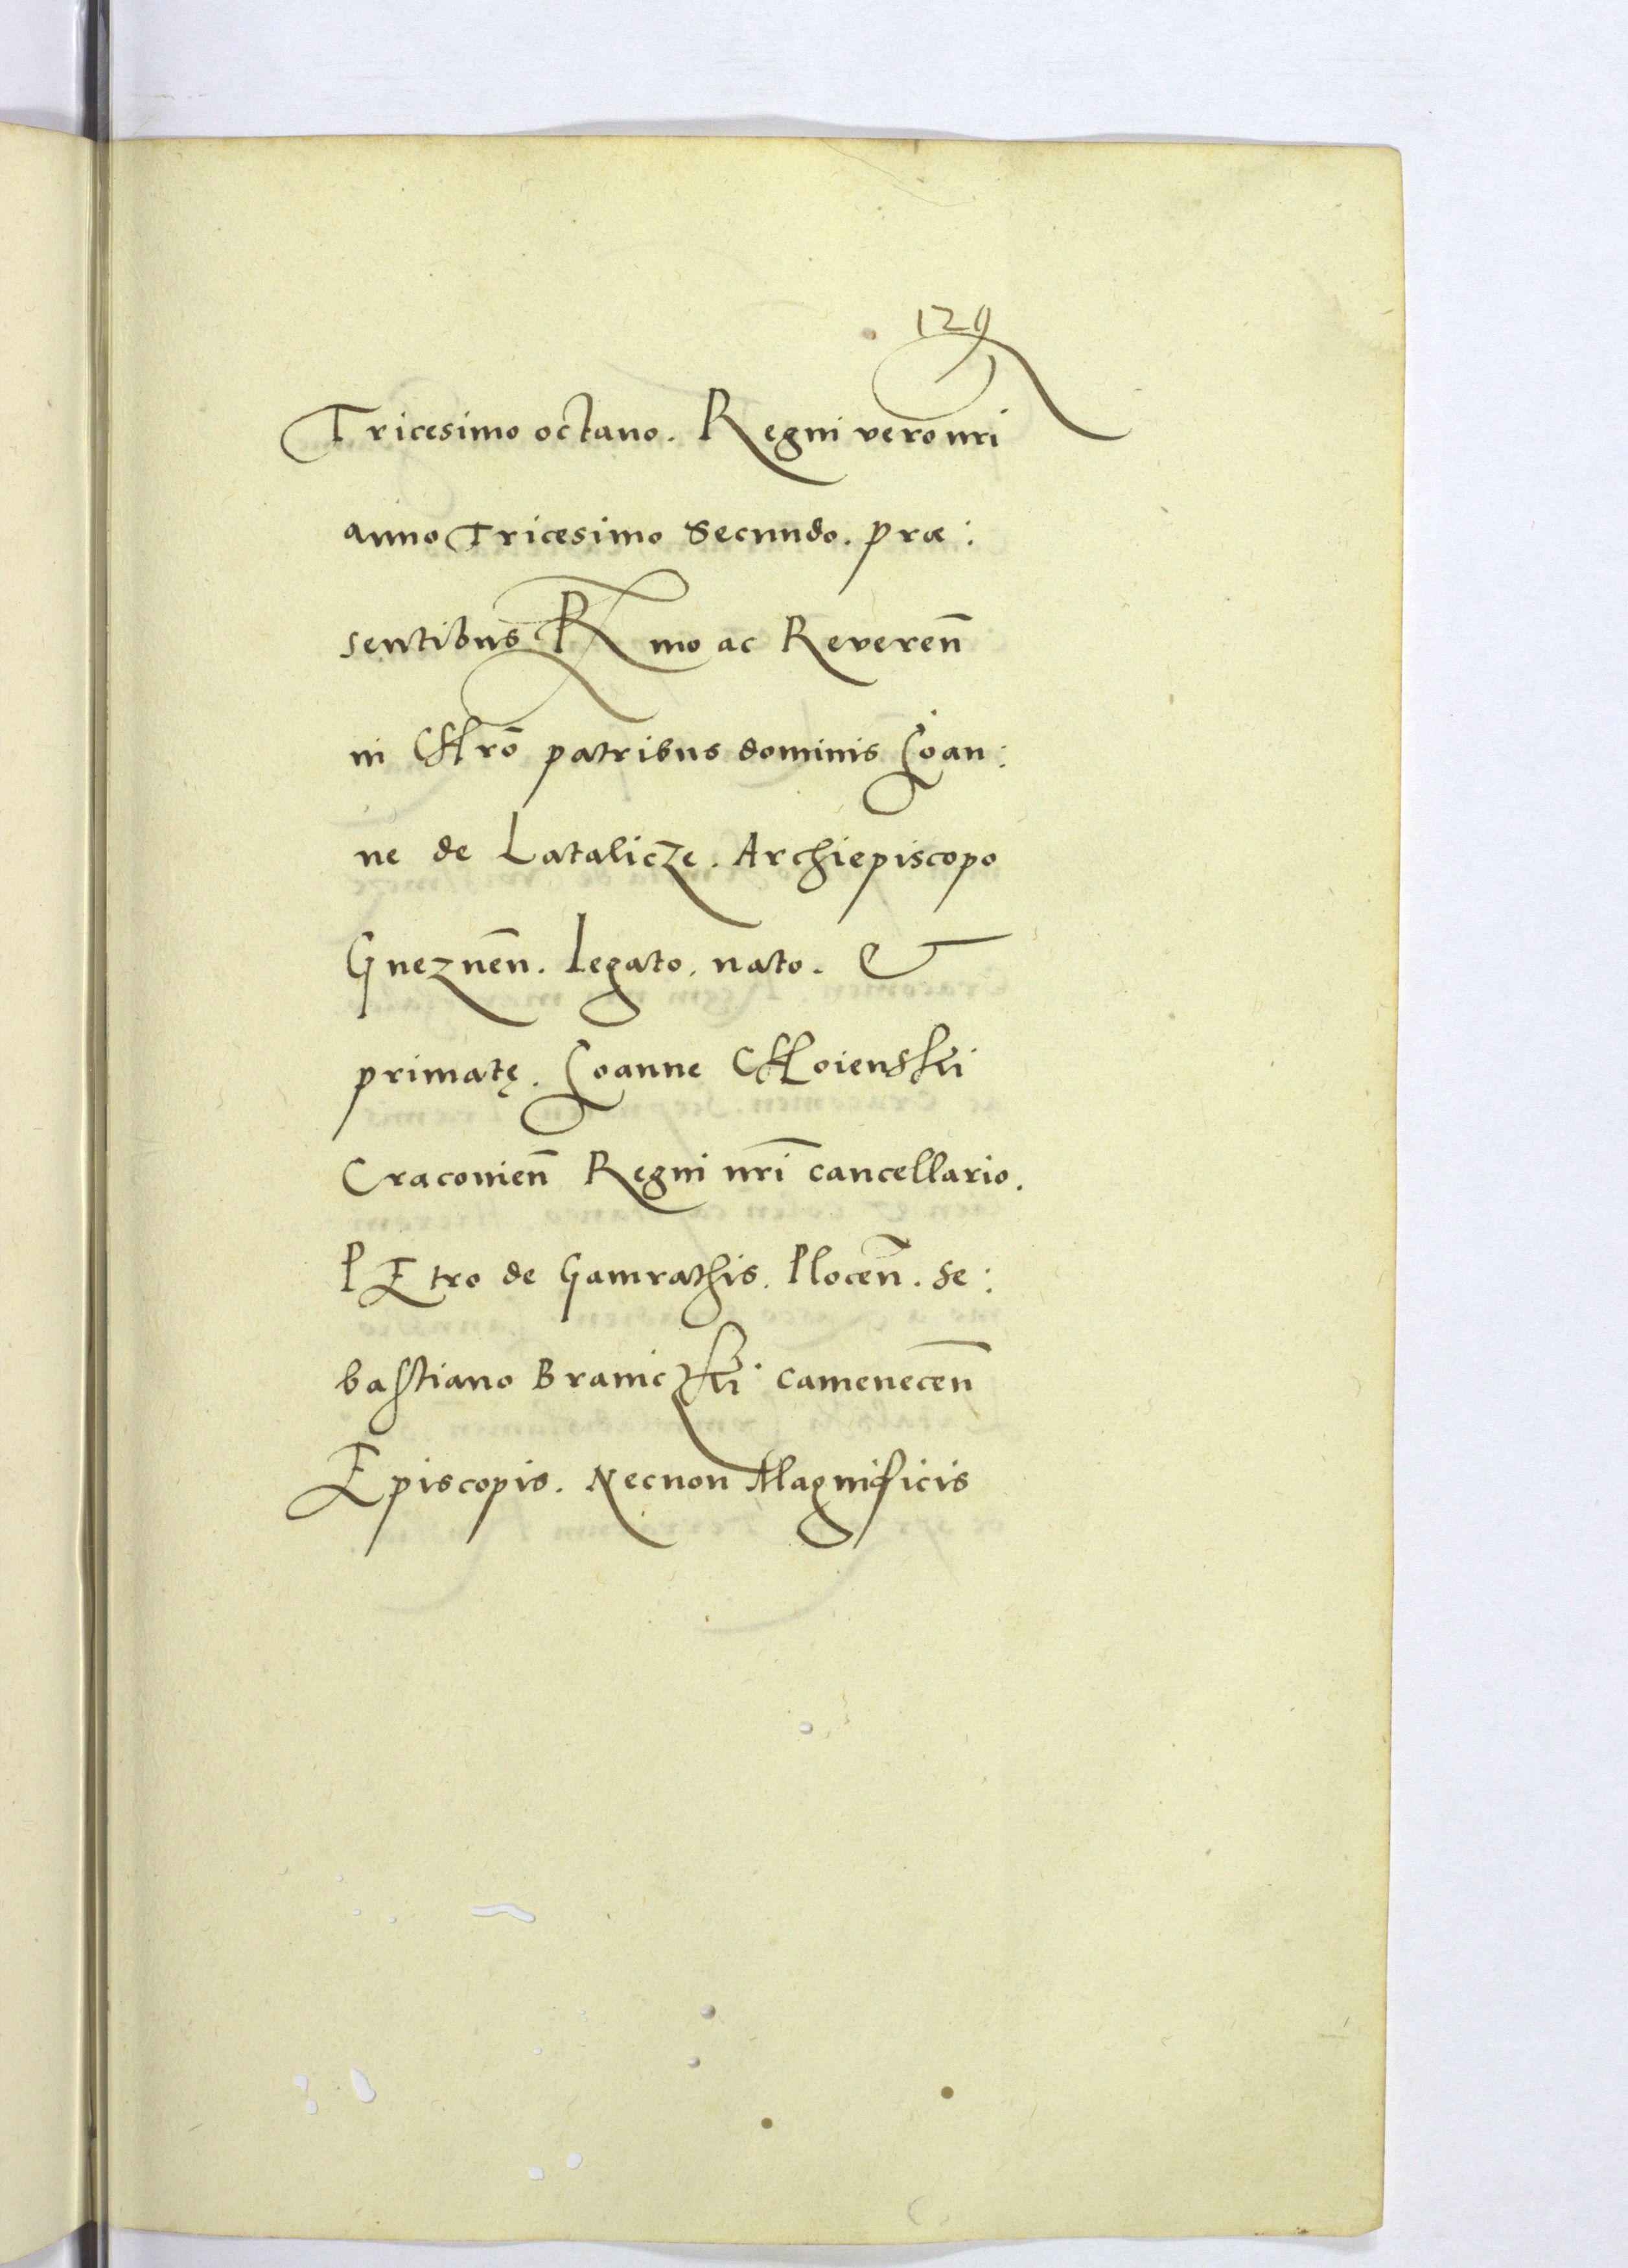 129
Tricesimo octavo. Regni vero nri
anno Tricesimo Secundo. præ:
sentibus Rmo ac Reveren̄
in Chrō patribus dominis Ioan:
ne de Latalicze. Archiepiscopo
Gneznen̄. Legato. nato. &
primatę. Ioanne Choienski
Cracovien̄ Regni nr̄i cancellario.
PEtro de Gamrathis. Plocen̄. Se:
bastiano Braniczki camenecen̄
Episcopis. Necnon Magnificis